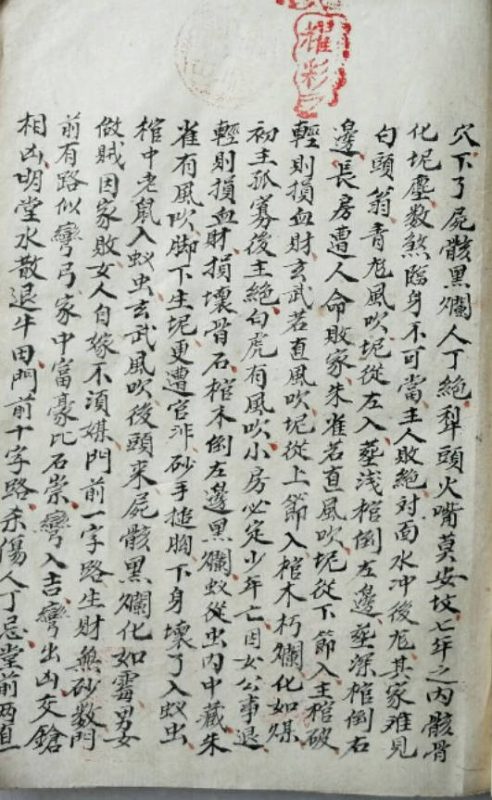 耀彩
穴下了屍骸黑爛人丁絕犂頭火嘴莫安坟七年之内骸骨
化坭塵数煞臨身不可當主人敗絕对面水冲後尨其家难見
白頭翁青尨風吹坭從左入塟浅棺倒左邊塟深棺倒右
邊長房遭人命敗家朱雀若直風吹坭從下節入主棺破
輕則損血財玄武若直風吹坭從上節入棺木朽爛化如煤
初主孤寡後主絕白虎有風吹小房必定少年亡因女公事退
輕則損血財損壞骨石棺木倒左邊黑爛蚁從虫内中藏朱
雀有風吹脚下生坭更遭官非砂手搥胸下身壞了入蚁虫
棺中老鼠入蚁虫玄武風吹後頭來屍骸黑爛化如霉男女
做賊因家敗女人自嫁不須媒門前一字路生財無砂数門
前有路似彎弓家中富豪比石崇彎入吉彎出凶交鎗
相凶明堂水散退牛田門前十字路杀傷人丁忌堂前两直